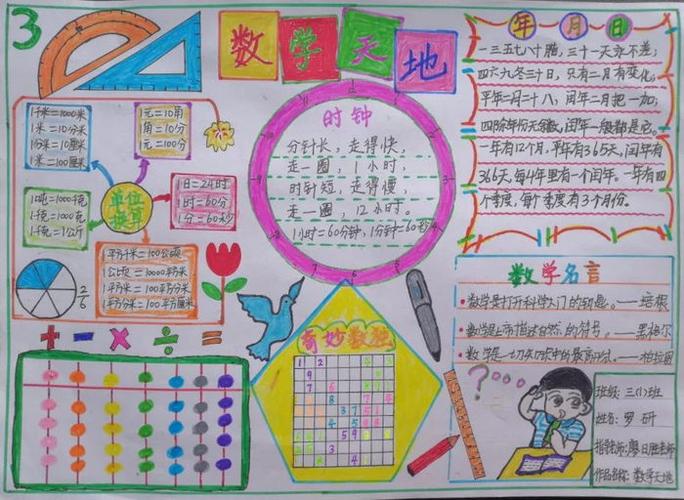 3
数学天地
年月日
一三五七八十腊，三十一天永不差，
四六九冬三十日，只有二月有变化。
平年二月二十八，闰年二月把一加，
一年有12个月，平年有365天，闰年有
366天，每4年里有一个闰年。一年有四
个季度，每个季度有3个月份。
时钟
分针长，走得快，
走一圈，1小时，
时针短，走得慢，
走一圈，12小时。
1小时=60分钟，1分钟=60秒
1千米=1000米
1米=10分米
1分米=10厘米
1米=100厘米
1元=10角
1角=10分
1元=100分
单位
换算
1日=24时
1时=60分
1分=60秒
1吨=1000千克
1千克=1000克
1千克=1公斤
1平方千米=100公顷
1公顷=10000平方米
1平方米=100平方分米
1平方分米=100平方厘米
2/6
+ - × ÷ =
奇妙数独
数学名言
数学是打开科学大门的钥匙。——培根
数学是上帝描述自然的符号。——黑格尔
班级：三(1)班
姓名：罗研
指导师：廖日胜老师
作品名称：数学天地